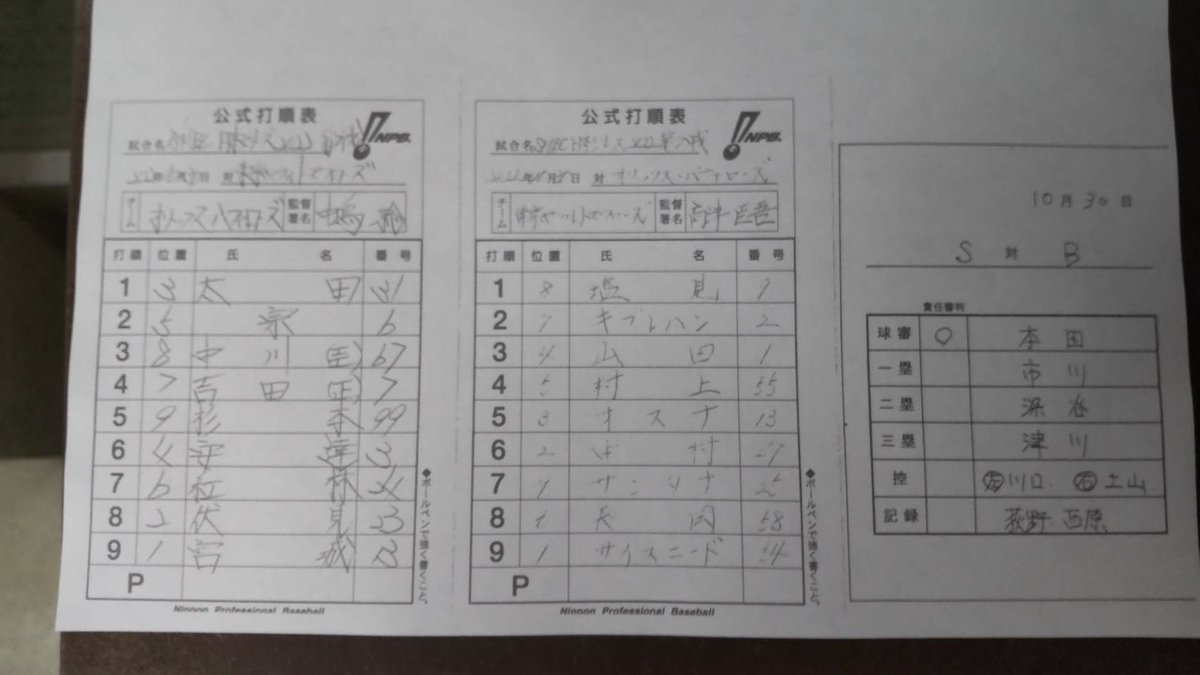 公式打順表
NPB.
試合名
対
チーム オリックスバファローズ 監督署名 中嶋 聡
打順 位置 氏 名 番号
1 3 太田 31
2 5 宗 6
3 8 中川圭 67
4 7 吉田正 7
5 9 杉本 99
6 4 安達 3
7 6 紅林 24
8 2 伏見 23
9 1 宮城 13
P
Nippon Professional Baseball
◆ボールペンで強く書くこと。
公式打順表
NPB.
試合名
対 オリックス・バファローズ
チーム 東京ヤクルトスワローズ 監督署名 高津臣吾
打順 位置 氏 名 番号
1 8 塩見 9
2 7 キブレハン 2
3 4 山田 1
4 5 村上 55
5 3 オスナ 13
6 2 中村 27
7 9 サンタナ 25
8 6 長岡 58
9 1 サイスニード 54
P
Nippon Professional Baseball
◆ボールペンで強く書くこと。
10月30日
S 対 B
責任審判
球審 ○ 本田
一塁 市川
二塁 深谷
三塁 津川
控 左川口 右土山
記録 荻野 西原